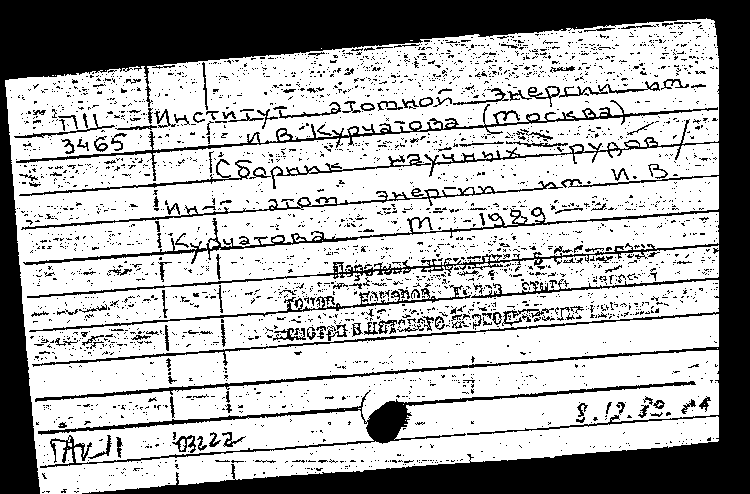 ПII Институт атомной энергии им.
3465 И. В. Курчатова (Москва)
Сборник научных трудов /
Ин-т атом. энергии им. И. В.
Курчатова. - М., 1989 -
Перечень имеющихся в библиотеке
томов, номеров, годов этого издания
смотри в каталоге периодических изданий
03222